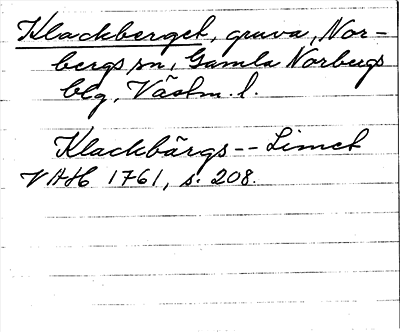 Klackberget, gruva, Nor-
bergs sn, Gamla Norbergs
blg, Västm. l.
Klackbärgs -- Limet
VAH 1761, s. 208.